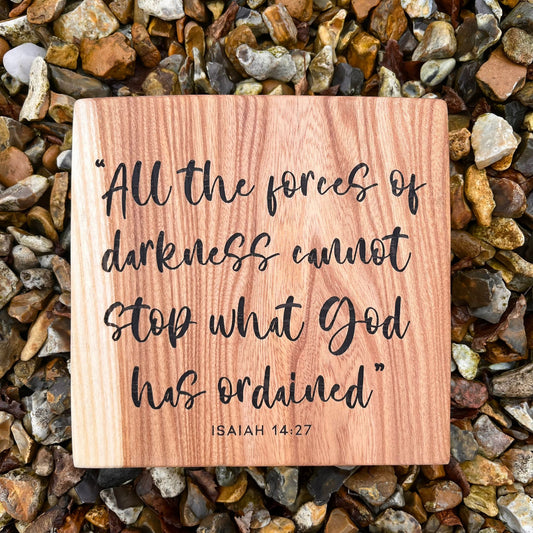 “All the forces of
darkness cannot
stop what God
has ordained”
ISAIAH 14:27